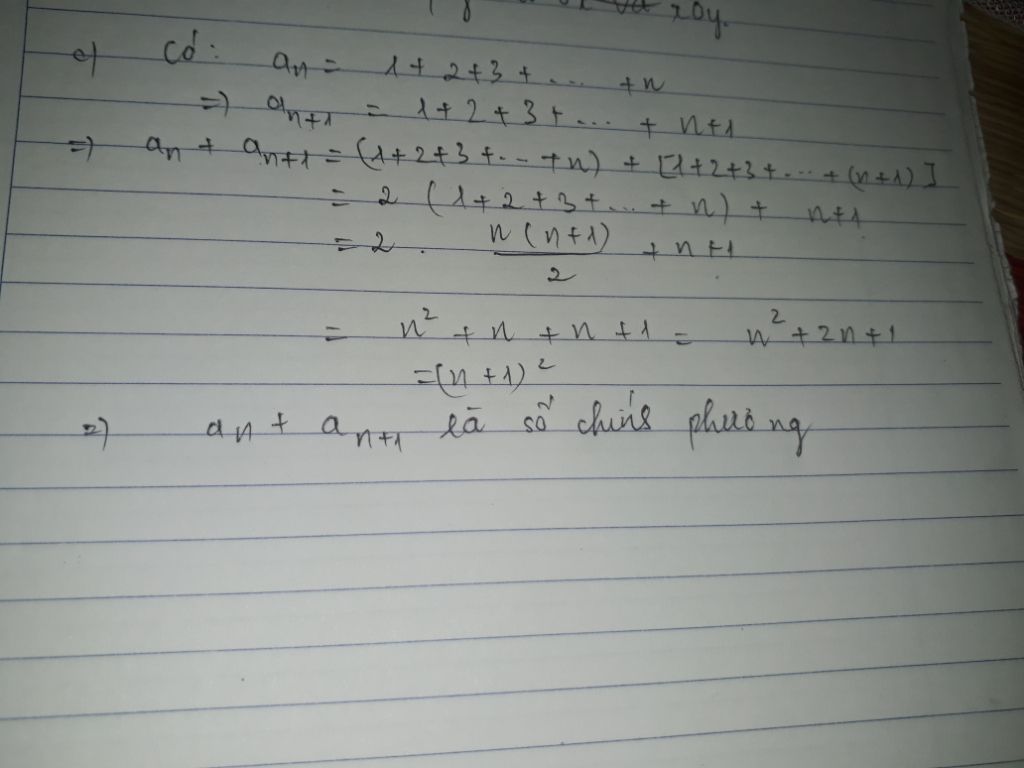 xOy.
c) Có: aₙ = 1 + 2 + 3 + ... + n
=) aₙ₊₁ = 1 + 2 + 3 + ... + n+1
=) aₙ + aₙ₊₁ = (1+2+3+...+n) + [1+2+3+...+(n+1)]
= 2 (1+2+3+...+n) + n+1
= 2 . n(n+1)/2 + n+1
= n² + n + n + 1 = n² + 2n + 1
= (n+1)²
=) aₙ + aₙ₊₁ là số chính phương